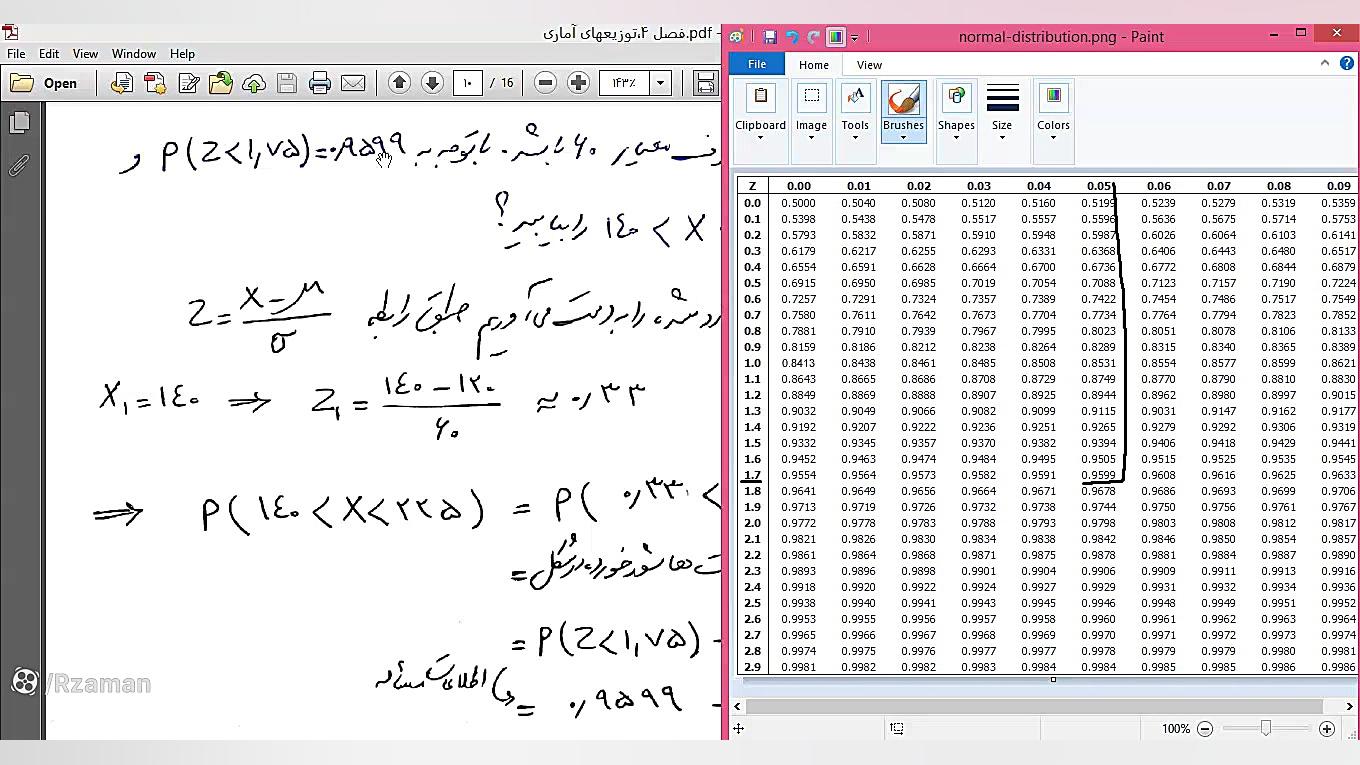 فصل ۴،توزیعهای آماری.pdf -
File Edit View Window Help
Open ۱۰ / 16 ۱۴۳٪
معیار ۶۰ باشد. با توجه به P(Z<1,۷۵)=۰,۹۵۹۹ و
۱۴۰ < X را بیابید؟
را به دست می‌آوریم طبق رابطه Z = X-μ / σ
X₁=۱۴۰ ⇒ Z₁ = ۱۴۰-۱۲۰ / ۶۰ ≈ ۰,۳۳
⇒ P(۱۴۰<X<۲۲۵) = P( ۰,۳۳ <
=
= P(Z<1,۷۵) -
= ۰,۹۵۹۹ -
/Rzaman
normal-distribution.png - Paint
File Home View
Clipboard Image Tools Brushes Shapes Size Colors
Z 0.00 0.01 0.02 0.03 0.04 0.05 0.06 0.07 0.08 0.09
0.0 0.5000 0.5040 0.5080 0.5120 0.5160 0.5199 0.5239 0.5279 0.5319 0.5359
0.1 0.5398 0.5438 0.5478 0.5517 0.5557 0.5596 0.5636 0.5675 0.5714 0.5753
0.2 0.5793 0.5832 0.5871 0.5910 0.5948 0.5987 0.6026 0.6064 0.6103 0.6141
0.3 0.6179 0.6217 0.6255 0.6293 0.6331 0.6368 0.6406 0.6443 0.6480 0.6517
0.4 0.6554 0.6591 0.6628 0.6664 0.6700 0.6736 0.6772 0.6808 0.6844 0.6879
0.5 0.6915 0.6950 0.6985 0.7019 0.7054 0.7088 0.7123 0.7157 0.7190 0.7224
0.6 0.7257 0.7291 0.7324 0.7357 0.7389 0.7422 0.7454 0.7486 0.7517 0.7549
0.7 0.7580 0.7611 0.7642 0.7673 0.7704 0.7734 0.7764 0.7794 0.7823 0.7852
0.8 0.7881 0.7910 0.7939 0.7967 0.7995 0.8023 0.8051 0.8078 0.8106 0.8133
0.9 0.8159 0.8186 0.8212 0.8238 0.8264 0.8289 0.8315 0.8340 0.8365 0.8389
1.0 0.8413 0.8438 0.8461 0.8485 0.8508 0.8531 0.8554 0.8577 0.8599 0.8621
1.1 0.8643 0.8665 0.8686 0.8708 0.8729 0.8749 0.8770 0.8790 0.8810 0.8830
1.2 0.8849 0.8869 0.8888 0.8907 0.8925 0.8944 0.8962 0.8980 0.8997 0.9015
1.3 0.9032 0.9049 0.9066 0.9082 0.9099 0.9115 0.9031 0.9147 0.9162 0.9177
1.4 0.9192 0.9207 0.9222 0.9236 0.9251 0.9265 0.9279 0.9292 0.9306 0.9319
1.5 0.9332 0.9345 0.9357 0.9370 0.9382 0.9394 0.9406 0.9418 0.9429 0.9441
1.6 0.9452 0.9463 0.9474 0.9484 0.9495 0.9505 0.9515 0.9525 0.9535 0.9545
1.7 0.9554 0.9564 0.9573 0.9582 0.9591 0.9599 0.9608 0.9616 0.9625 0.9633
1.8 0.9641 0.9649 0.9656 0.9664 0.9671 0.9678 0.9686 0.9693 0.9699 0.9706
1.9 0.9713 0.9719 0.9726 0.9732 0.9738 0.9744 0.9750 0.9756 0.9761 0.9767
2.0 0.9772 0.9778 0.9783 0.9788 0.9793 0.9798 0.9803 0.9808 0.9812 0.9817
2.1 0.9821 0.9826 0.9830 0.9834 0.9838 0.9842 0.9846 0.9850 0.9854 0.9857
2.2 0.9861 0.9864 0.9868 0.9871 0.9875 0.9878 0.9881 0.9884 0.9887 0.9890
2.3 0.9893 0.9896 0.9898 0.9901 0.9904 0.9906 0.9909 0.9911 0.9913 0.9916
2.4 0.9918 0.9920 0.9922 0.9924 0.9927 0.9929 0.9931 0.9932 0.9934 0.9936
2.5 0.9938 0.9940 0.9941 0.9943 0.9945 0.9946 0.9948 0.9949 0.9951 0.9952
2.6 0.9953 0.9955 0.9956 0.9957 0.9958 0.9960 0.9961 0.9962 0.9963 0.9964
2.7 0.9965 0.9966 0.9967 0.9968 0.9969 0.9970 0.9971 0.9972 0.9973 0.9974
2.8 0.9974 0.9975 0.9976 0.9977 0.9977 0.9978 0.9979 0.9979 0.9980 0.9981
2.9 0.9981 0.9982 0.9982 0.9983 0.9984 0.9984 0.9985 0.9985 0.9986 0.9986
100%